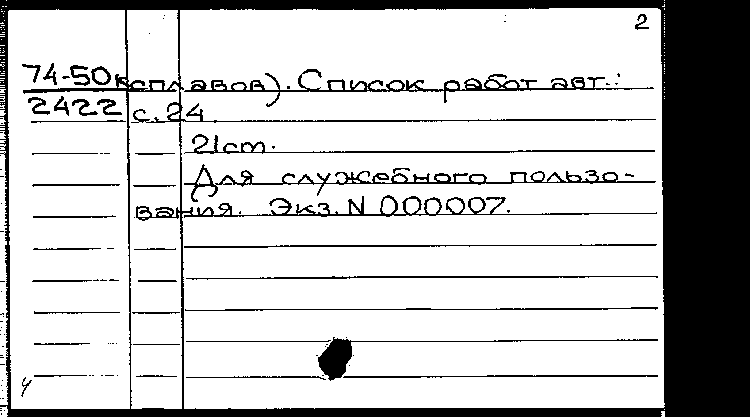 2
74-50 к сплавов). Список работ авт.:
2422 с. 24.
21 см.
Для служебного пользо-
вания. Экз. N 000007.
4